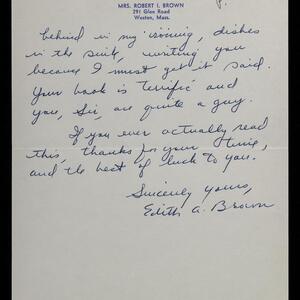 MRS. ROBERT I. BROWN
291 Glen Road
Weston, Mass.
8.
behind in my ironing, dishes
in the sink, writing you
because I must get it said.
Your book is terrific and
you, Sir, are quite a guy.
If you ever actually read
this, thanks for your time,
and the best of luck to you.
Sincerely yours,
Edith A. Brown